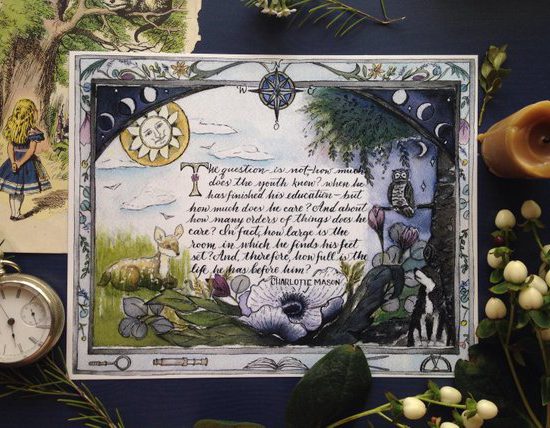 W E
The question is not-how much
does the youth know? when he
has finished his education-but
how much does he care? And about
how many orders of things does he
care? In fact, how large is the
room in which he finds his feet
set? And, therefore, how full is the
life he has before him?
~CHARLOTTE MASON